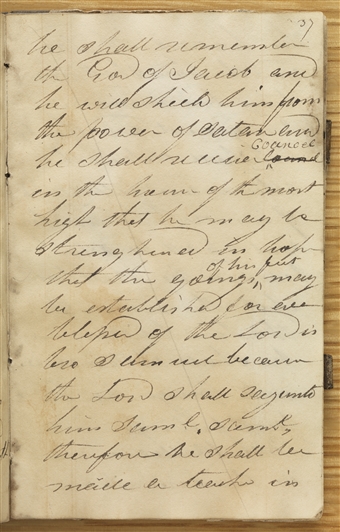 37
he shall remember
the God of Jacob and
he will shield him from
the power of Satan and
he shall receive Councel
in the house of the most
high that he may be
strengthened in hope
that the goings of his feet may
be established for ever
blessed of the Lord is
bro Samuel because
the Lord shall say unto
him Saml, Saml,
therefore he shall be
made a teacher in